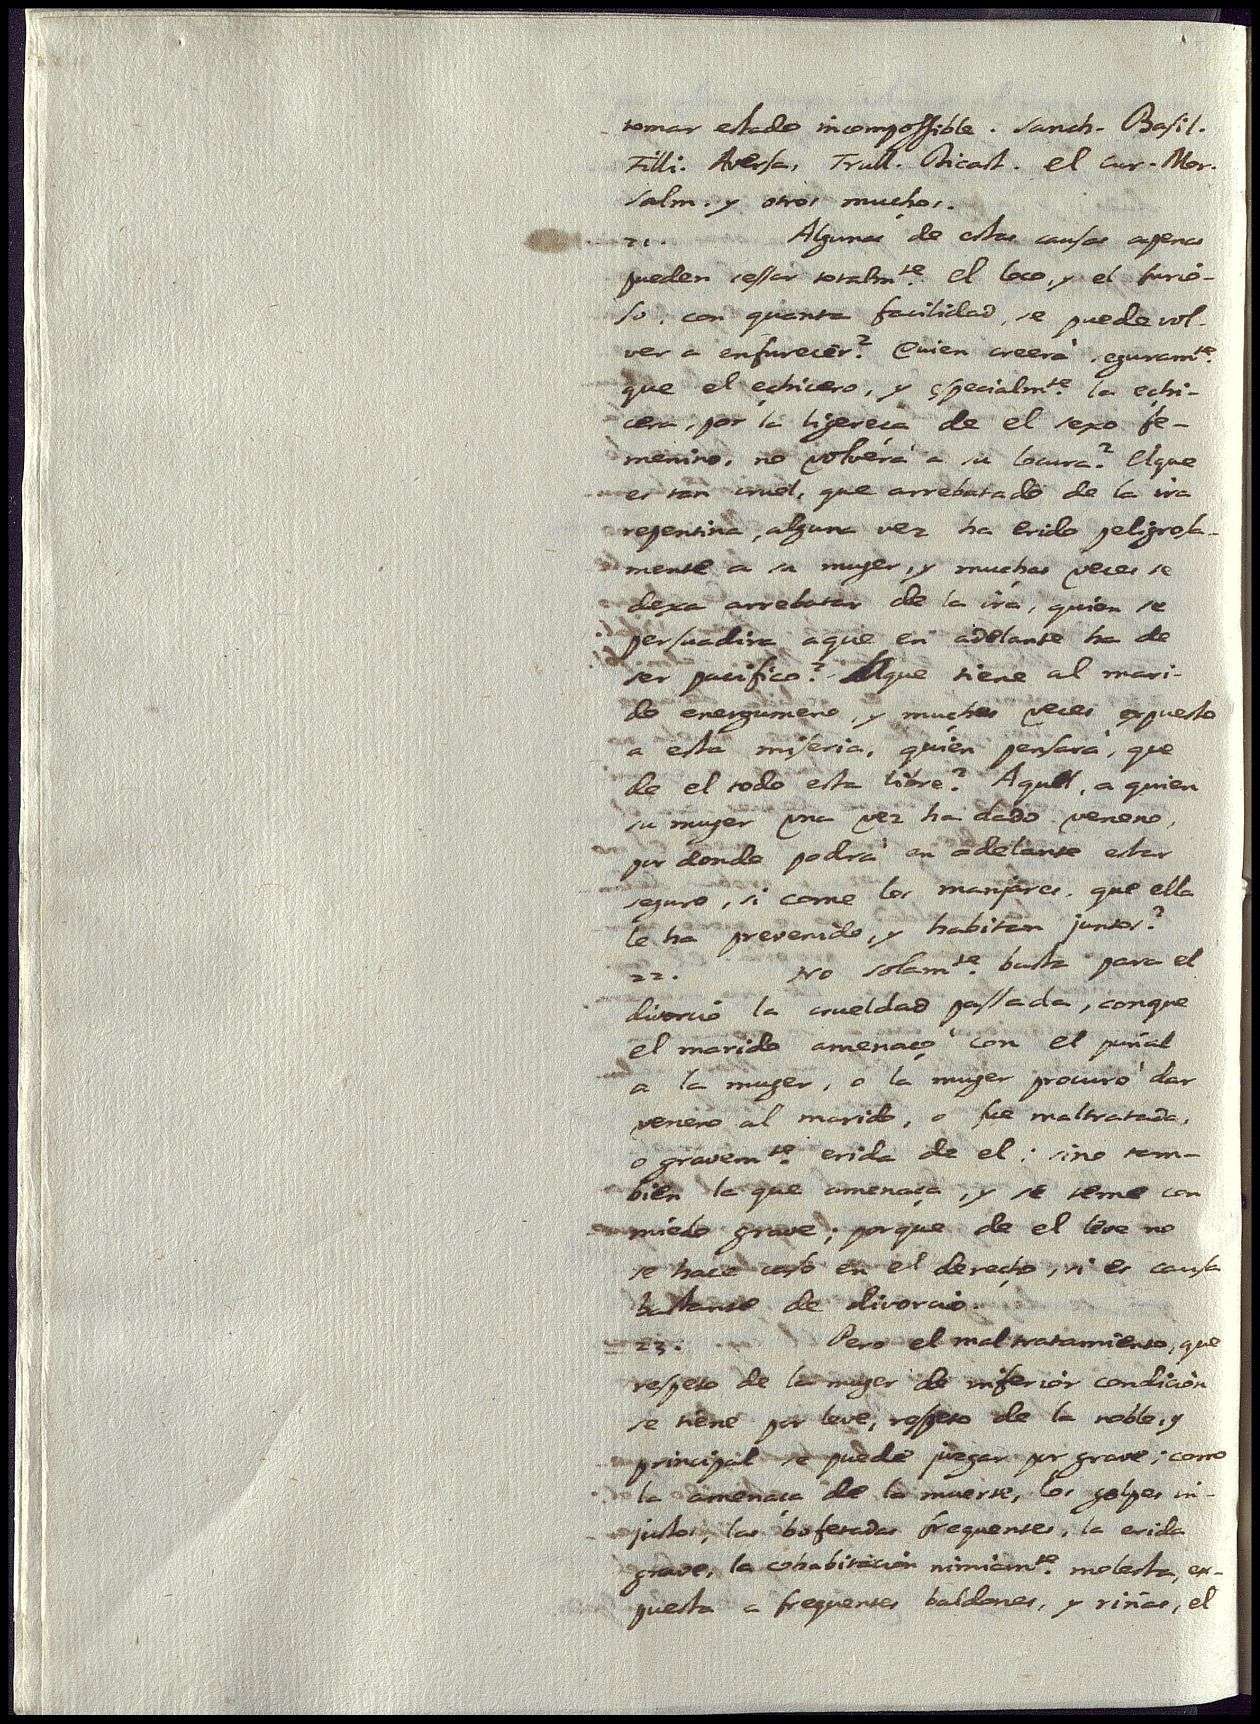 tomar estado incompossible. Sanch. Basil.
Filli. Aversa, Trull. Dicast. el Cur. Mor.
Salm. y otros muchos.
21. Algunas de estas causas apenas
pueden cessar totalmte. El loco, y el furio-
so, con quanta facilidad, se puede vol-
ver a enfurecer? Quien creerà seguramte.
que el echicero, y especialmte. la echi-
cera, por la ligereça de el sexo fe-
menino, no volverà a su locura? El que
es tan cruel, que arrebatado de la ira
repentina, alguna vez ha erido peligrosa-
mente a su muger, y muchas veces se
dexa arrebatar de la ira, quien se
persuadira aque en adelante ha de
ser pacifico? La que tiene al mari-
do energumeno, y muchas veces expuesto
a esta miseria, quien pensarà, que
de el todo esta libre? Aquel, a quien
su muger una vez ha dado veneno,
por donde podrà en adelante estar
seguro, si come los manjares, que ella
le ha prevenido, y habitan juntos?
22. No solamte. basta para el
divorcio la crueldad passada, conque
el marido amenaço con el puñal
a la muger, o la muger procurò dar
veneno al marido, o fue maltratada,
o gravemte. erida de el; sino tam-
bien la que amenaça, y se teme con
miedo grave; porque de el leve no
se hace caso en el derecho, si es causa
bastante de divorcio.
23. Pero el mal tratamiento, que
respeto de la muger de inferior condicion
se tiene por leve, respeto de la noble, y
principal se puede juzgar por grave; como
la amenaça de la muerte, los golpes in-
justos, las bofetadas frequentes, la erida
grave, la cohabitacion nimiamte. molesta, ex-
puesta a frequentes baldones, y riñas, el